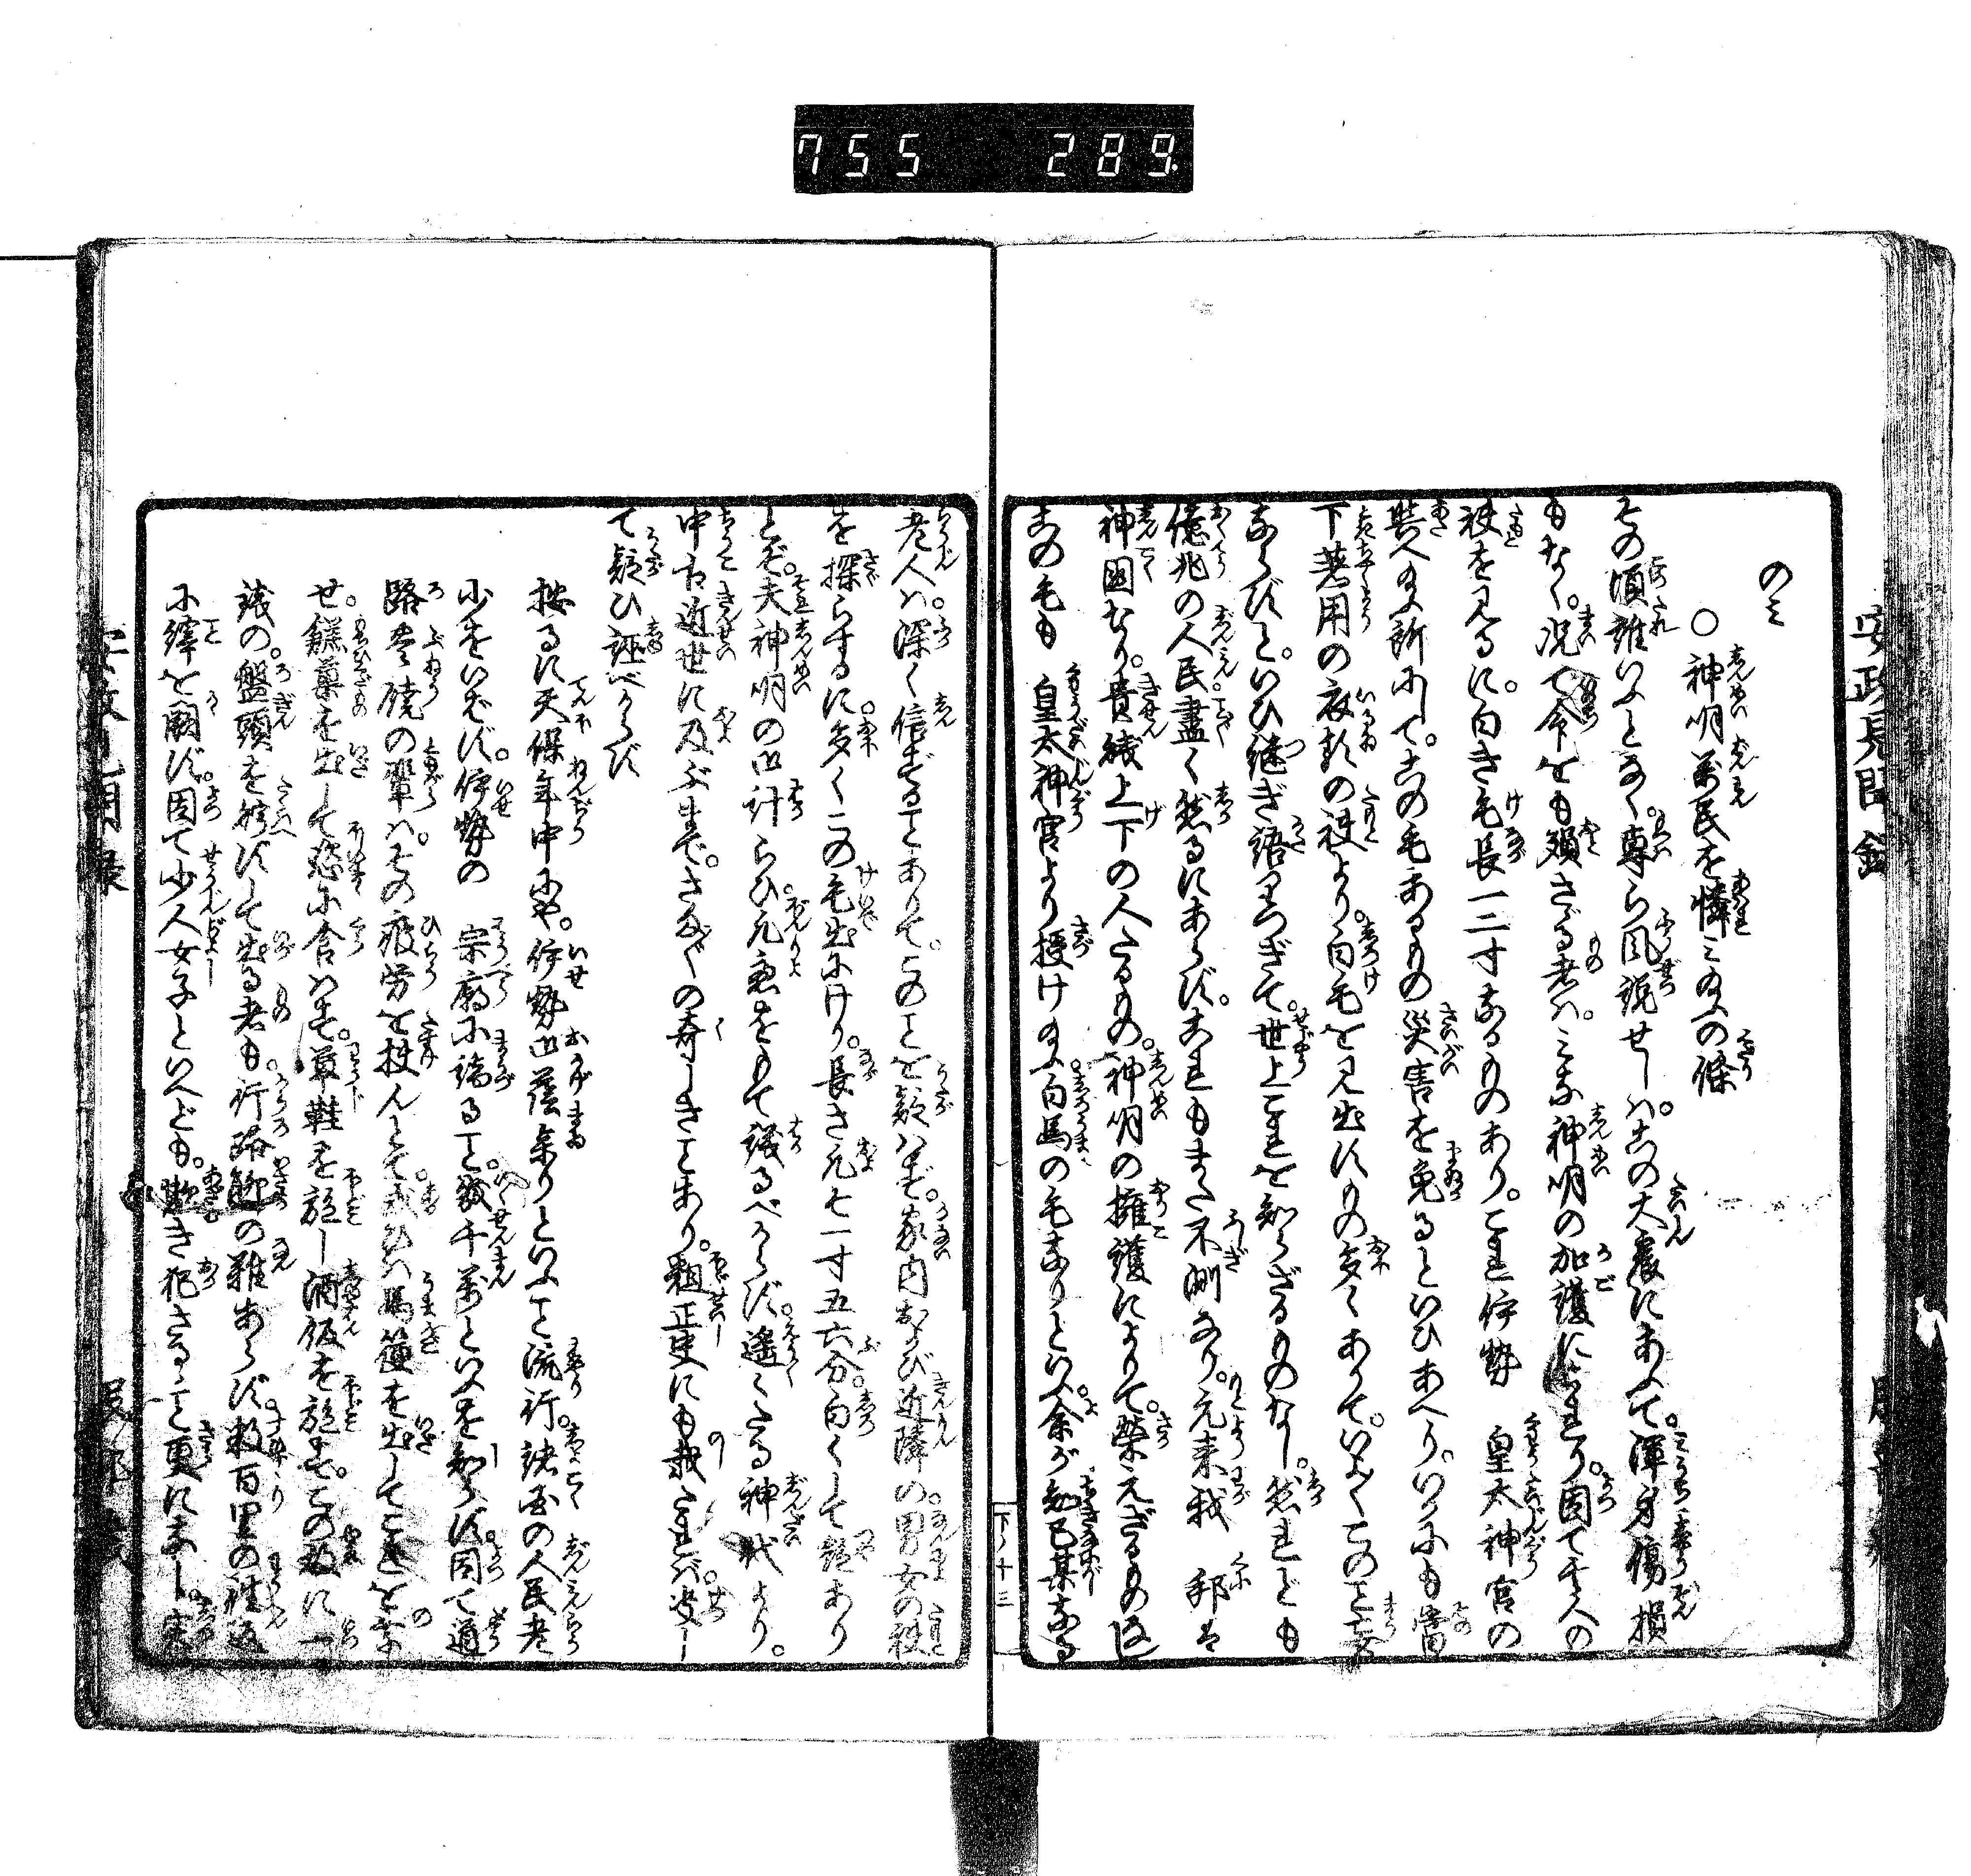 755 289
安政見聞録
のミ
○神明萬民を憐ミ玉ふの條
その頃誰いふとなく。専ら風説せしハ。この大震にあふて。渾身傷損
もなく。況て命をも殞さゞる者ハ。ミな神明の加護によれり。因て其人の
袂を見るに。白き毛長一二寸なるものあり。これ伊勢 皇太神宮の
與へ玉ふ所にして。この毛あるもの災害を免るといひあへり。いかにも當
下著用の衣類の袂より。白毛を見出すもの多くありて。いよ〳〵この
ならずと。いひ継ぎ語りつぎて。世上これを知らざるものなし。然れども
億兆の人民盡く然るにあらず。これもまた不測なり。元来我 邦は
神国なり。貴賤上下の人たるもの。神明の擁護によりて。榮えざるもの
この毛も 皇太神宮より授け玉ふ。白馬の毛なりといふ。余が知己某なる
下ノ十三
老人ハ。深く信ずることありて。このことを疑ハず。家内および近隣の男女の袂
を探らするに多くこの毛出にけり。長さ凡七一寸五六分。白くして艶あり
とぞ。夫神明の御計らひ凡慮をもて議るべからず。遙々たる神代より。
中古近世に及ぶまで。さま〴〵の奇しきことあり。粗正史にも載たれバ。决し
て疑ひ誣べからず
按るに天保年中にや。伊勢御蔭参りといふこと流行。諸国の人民老
少をいはず。伊勢の 宗廟に詣ること。幾千萬といふを知らず。因て通
路豊饒の輩ハ。その疲労を扶んとて。或ハ馬篭を出してこれを乗
せ。餻菓を出して恣に食ハせ。草鞋を施し酒飯を施す。この故に一
錢の。盤頭を貯ずして出る者も。行路艱の難あらず。数百里の往返
に繹を闕ず。因て少人女子といへども。欺き犯さるゝこと更になし。実